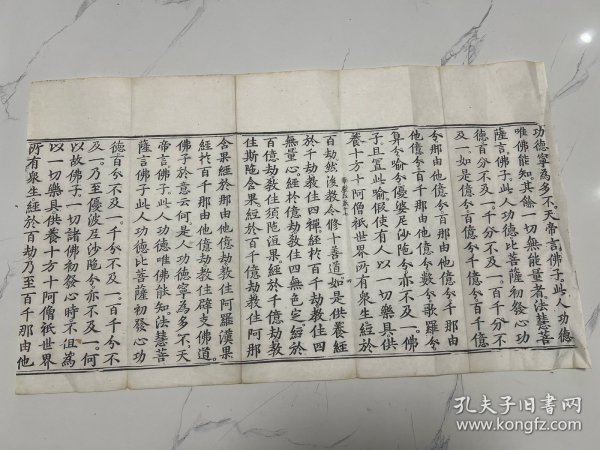 功德寧為多不。天帝言。佛子。此人功德
唯佛能知其餘一切無能量者。法慧菩
薩言。佛子。此人功德比菩薩初發心功
德百分不及一。千分不及一。百千分不
及一。如是億分百億分千億分百千億
分那由他億分百那由他億分千那由
他億分百千那由他億分數分歌羅分
算分喻分優婆尼沙陁分亦不及一。佛
子。且置此喻。假使有人以一切樂具供
養十方十阿僧祇世界所有衆生經於
百劫然後教令修十善道。如是供養經
於千劫教住四禪經於百千劫教住四
無量心。經於億劫教住四無色定經於
百億劫教住須陁洹果經於千億劫教
住斯陁含果經於百千億劫教住阿那
含果經於那由他億劫教住阿羅漢果
經於百千那由他億劫教住辟支佛道。
佛子。於意云何。是人功德寧為多不。天
帝言。佛子。此人功德唯佛能知。法慧菩
薩言。佛子。此人功德比菩薩初發心功
德百分不及一。千分不及一。百千分不
及一。乃至優波尼沙陁分亦不及一。何
以故。佛子。一切諸佛初發心時。不但為
以一切樂具供養十方十阿僧祇世界
所有衆生經於百劫乃至百千那由他
孔夫子旧书网
www.kongfz.com